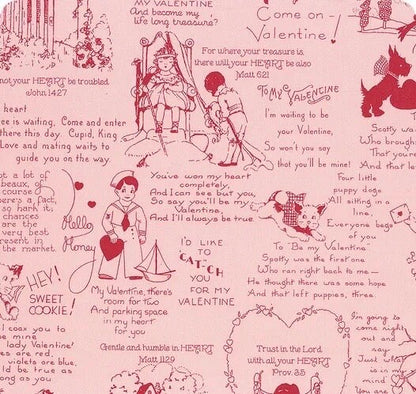 MY VALENTINE
And become my
life long treasure?
Come on-
Valentine!
For where your treasure is,
there will your HEART be also
Matt 6:21
not your HEART be troubled
John 14:27
heart
ee is waiting. Come and enter
there this day. Cupid, King
Love and mating waits to
guide you on the way.
To My VALENTINE
I'm waiting to be
your Valentine,
So won't you say
that you'll be mine!
Spotty was
Who brough
That you're
And that le
ot a lot of
beaux, of
course
there's a fact,
so harn it;
chances
are the
very best
present in
the market
Hello
Honey
You've won my heart
completely,
And I can see but you,
So say you'll be my
Valentine,
And I'll always be true
Four little
puppy dogs
All sitting in a
line,
Everyone begs
of you
To "Be my Valentine.
Spotty was the first one
Who ran right back to me—
He thought there was some hope
And that left puppies, three.
I'D LIKE
TO
CATCH
YOU
FOR MY
VALENTINE
HEY!
SWEET
COOKIE!
My Valentine, there's
room for two
And parking space
in my heart
for you
I coax you to
be mine
lady Valentine!
es are red,
violets are blue,
ld be true as
ong as you
Gentle and humble in HEART
Matt 11:29
Trust in the Lord
with all your HEART
Prov. 3:5
I'm going to
come right
out and
say
Just what
is in my
mind